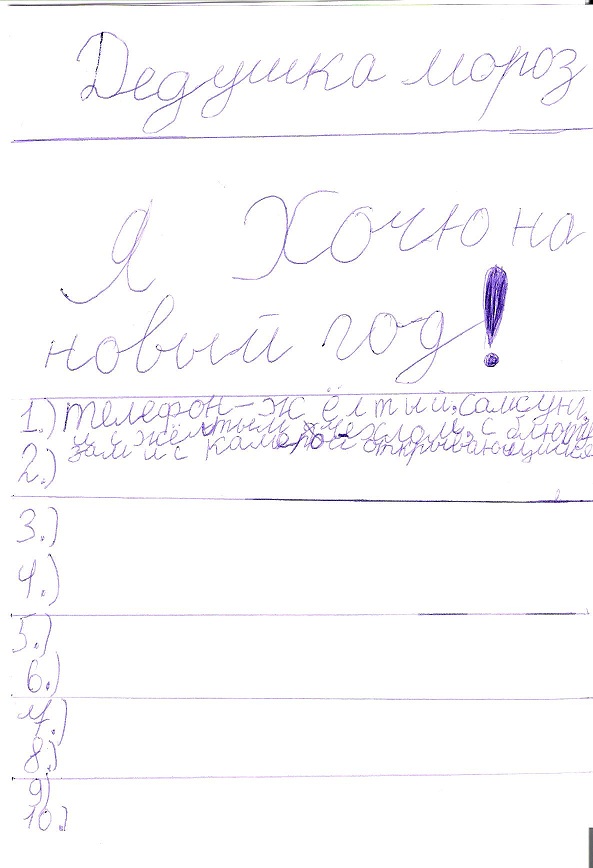 Дедушка мороз
Я Хочю на
новый год!
1.) телефон-жёлтый, самсунг,
и с жёлтым чехлом, с блюту
зам и с камерой открывающийся
2.)
3.)
4.)
5.)
6.)
7.)
8.)
9)
10.)